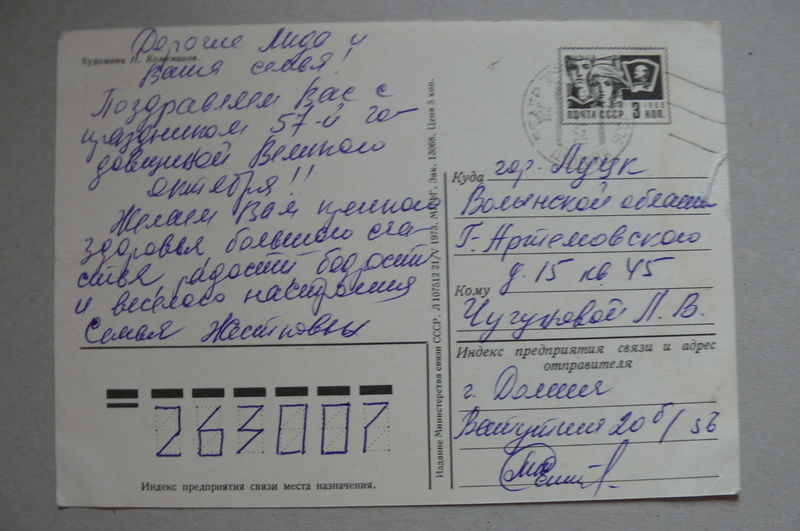 Художник Н. Колесников.
Дорогие Лида и
Ваша семья!
Поздравляем Вас с
праздником 57-й го-
довщиной Великого
октября!!
Желаем Вам крепкого
здоровья большого сча-
стья радости бодрости
и веселого настроения
Семья
Издание Министерства связи СССР. Л 107512 21/V 1973. МПФГ. Зак. 13068. Цена 3 коп.
ПОЧТА СССР
1966
3 КОП.
Куда гор. Луцк
Волынской области
Г-Артемовского
д. 15 кв 45
Кому
Чугуновой Л. В.
Индекс предприятия связи и адрес
отправителя
г. Долина
Ватутина 20 б/
263007
Индекс предприятия связи места назначения.